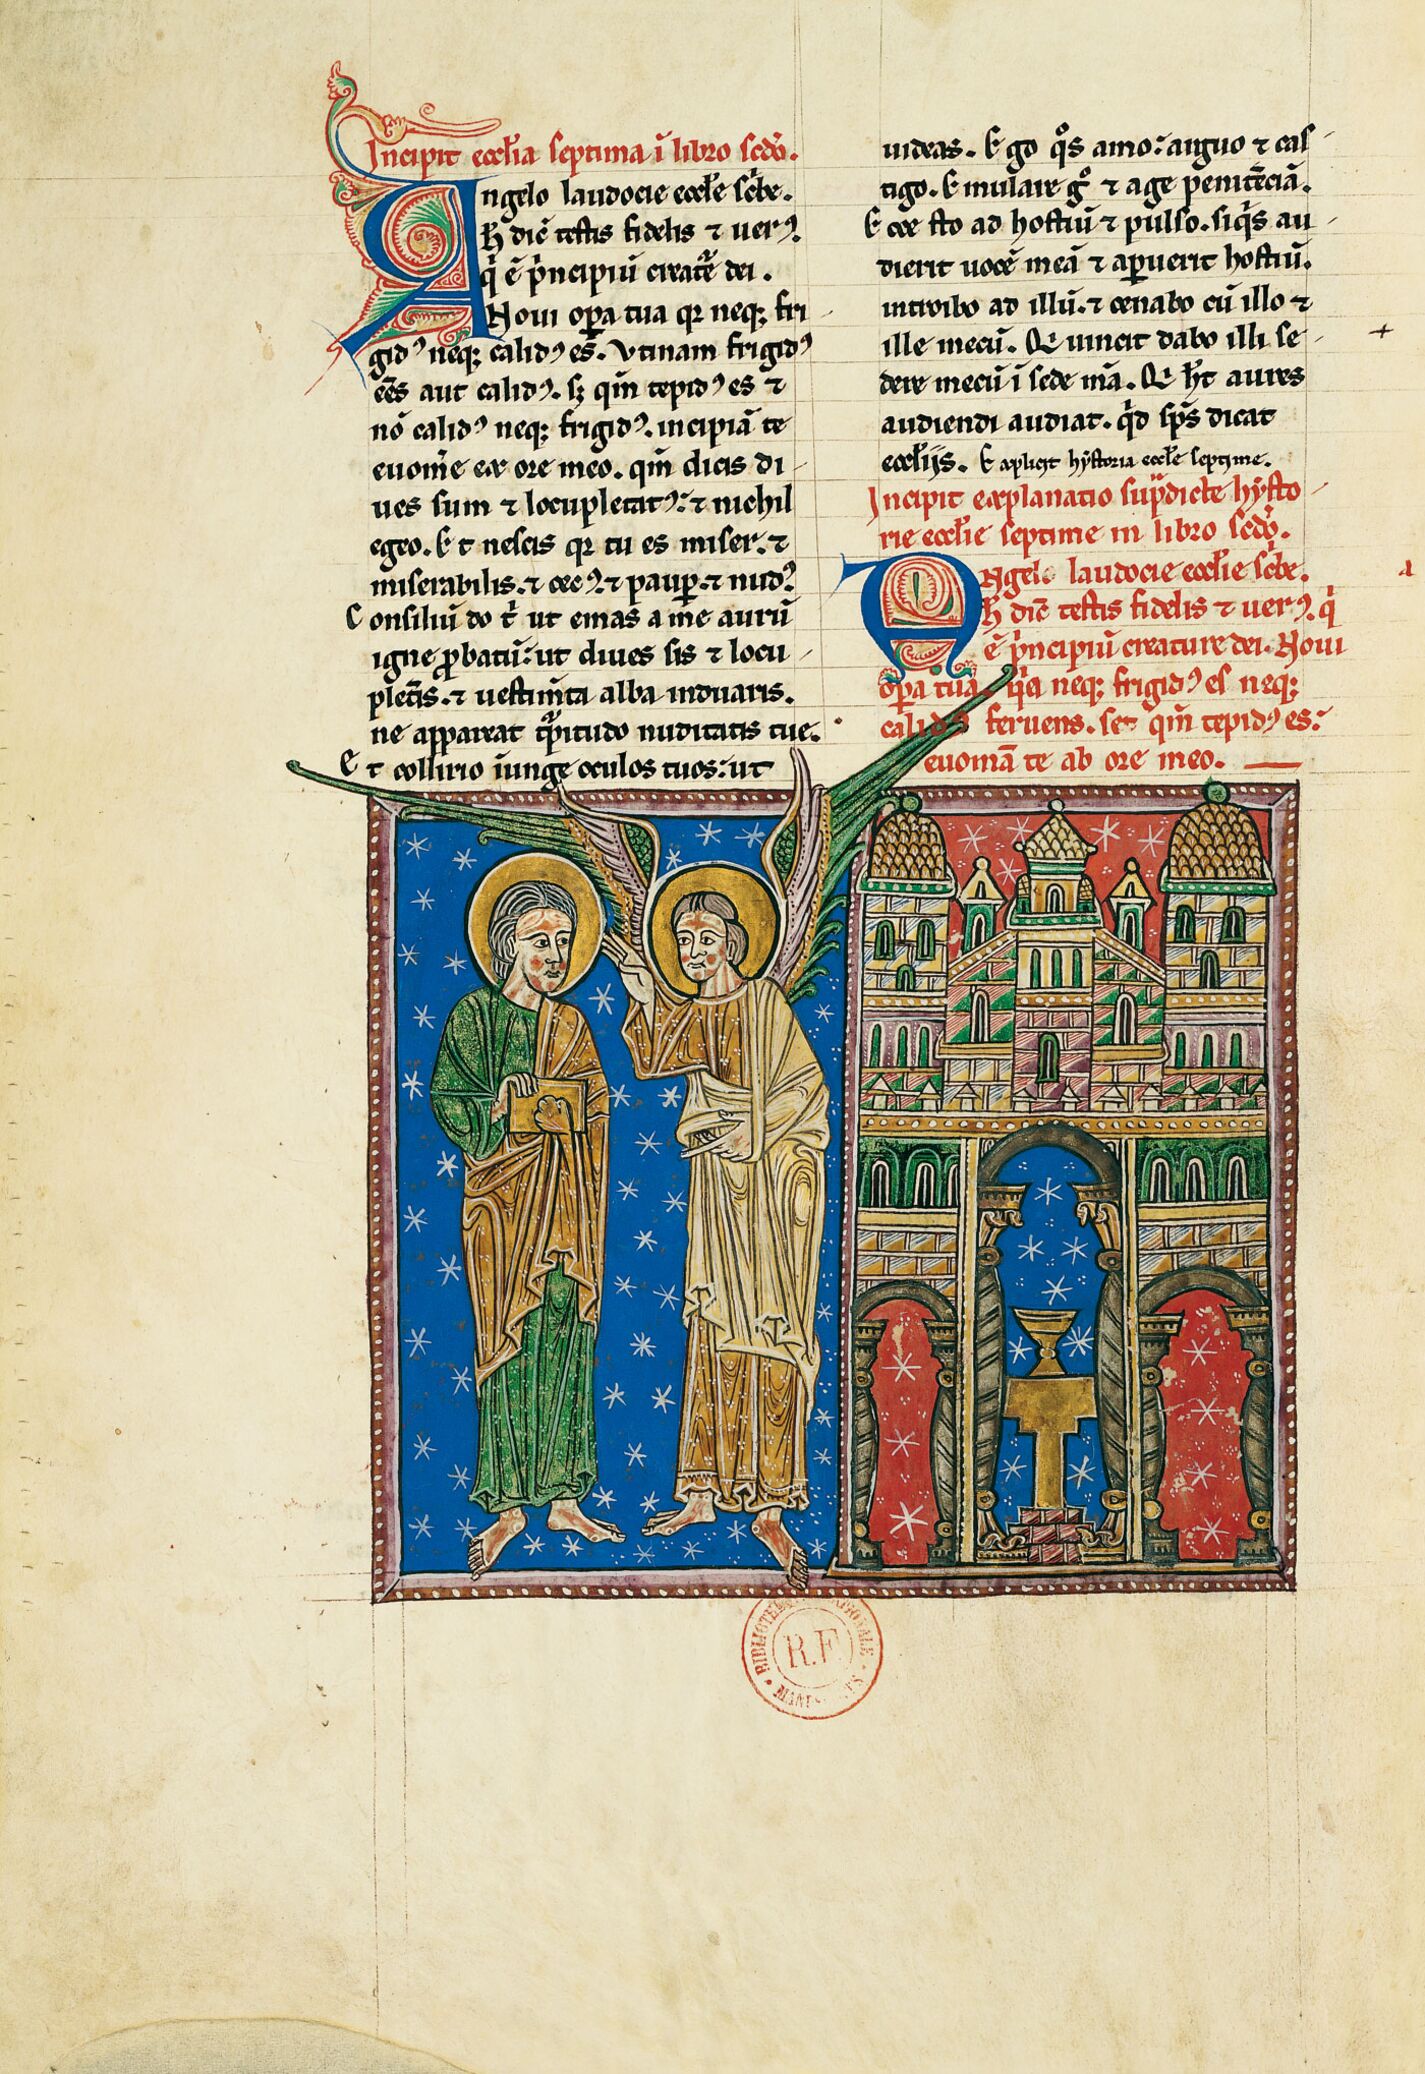 Incipit eccl̄ia septima ī libro scdo̅.
Angelo laudocie eccl̄e sc̄be.
H̄ dic̄ testis fidelis ⁊ uerꝰ.
q̄ ē p̄ncipiū creat̄e dei.
Noui oꝑa tua qr neqꝫ fri
gidꝰ neqꝫ calidꝰ es. Vtinam frigidꝰ
eēs aut calidꝰ. sꝫ qm̄ tepidꝰ es ⁊
nō calidꝰ neqꝫ frigidꝰ. incipiā te
euom̄e ex ore meo. qm̄ dicis di
ues sum ⁊ locupletatꝰ: ⁊ nichil
egeo. Et nescis qr tu es miser. ⁊
miserabilis. ⁊ cecꝰ: ⁊ pauꝑ. ⁊ nudꝰ:
Consiliū do t̄ ut emas a me aurū
igne ꝓbatū: ut diues sis ⁊ locu
plet̄is. ⁊ uestim̄ta alba induaris.
ne appareat t̄pitudo nuditatis tue.
Et collirio iunge oculos tuos: ut
uideas. Ego qͦs amo: arguo ⁊ cas
tigo. Emulare gͦ ⁊ age penitēciā.
Ecce sto ad hostiū ⁊ pulso. siq̄s au
dierit uocē meā ⁊ aꝑuerit hostiū.
introibo ad illū. ⁊ cenabo cū illo ⁊
ille mecū. Qi uincit dabo illi se
dere mecū ī sede mā. Qi h̄t aures
audiendi audiat. qͥd sp̄s dicat
eccl̄ijs. Explicit hẏstoria eccl̄e septime.
Incipit explanatio sup̄dicte hẏsto
rie eccl̄ie septime in libro scdo̅.
Angelo laudocie eccl̄ie sc̄be.
H̄ dic̄ testis fidelis ⁊ uerꝰ. qͥ
ē p̄ncipiū creature dei. Noui
oꝑa tua. qͥa neqꝫ frigidꝰ es neqꝫ
calidꝰ feruens. set qm̄ tepidꝰ es:
euomā te ab ore meo.
BIBLIOTHEQUE NATIONALE
R.F.